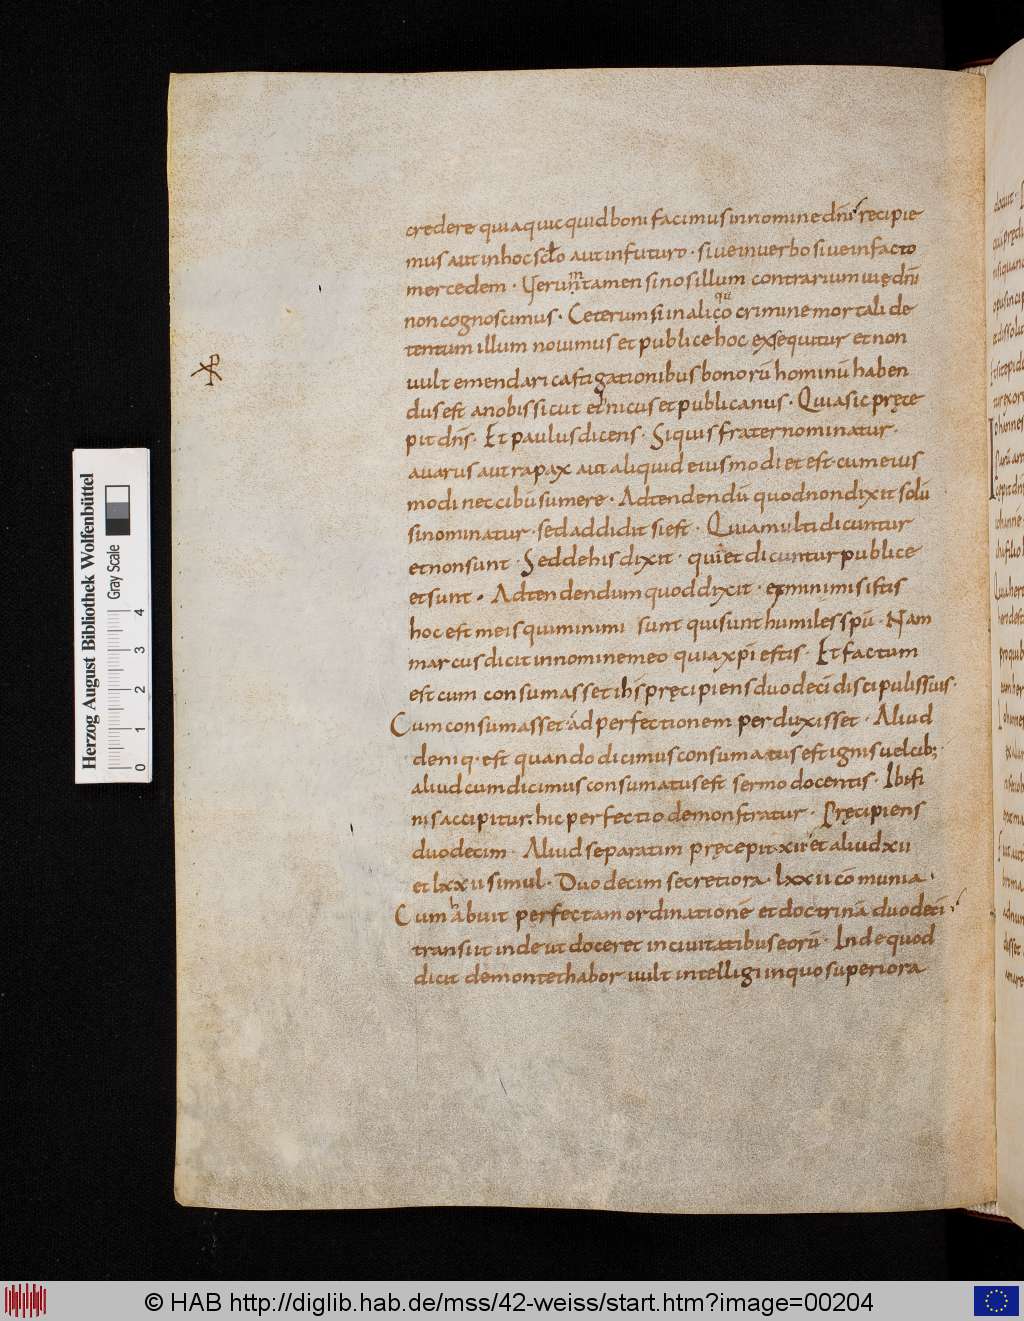 credere quia quicquid boni facimus in nomine dn̄i recipie
mus aut in hoc sc̄lo aut in futuro · siue in uerbo siue in facto
mercedem · Uerumtamen si nos illum contrarium uię dn̄i
non cognoscimus · Ceterum si in aliquo crimine mortali de
tentum illum nouimus et publice hoc exsequitur et non
uult emendari castigationibus bonorū hominū haben
dus est a nobis sicut ethnicus et publicanus · Quia sic pręce
pit dn̄s · Et paulus dicens · Si quis frater nominatur ·
auarus aut rapax aut aliquid eiusmodi et est · cum eius
modi nec cibū sumere · Adtendendū quod non dixit solū
si nominatur · sed addidit si est · Quia multi dicuntur
et non sunt · Sed de his dixit · qui et dicuntur publice
et sunt · Adtendendum quod dixit · ex minimis istis
hoc est meis qui minimi sunt qui sunt humiles spū · Nam
marcus dicit in nomine meo quia xp̄i estis · Et factum
est cum consumasset ih̄s pręcipiens duodeci discipulis suis ·
Cum consumasset · ad perfectionem perduxisset · Aliud
deniq · est quando dicimus consumatus est ignis uel cib;
aliud cum dicimus consumatus est sermo docentis · Ibi fi
nis accipitur · hic perfectio demonstratur · Pręcipiens
duodecim · Aliud separatim pręcepit xii et aliud xii
et lxxii simul · Duodecim secretiora · lxxii cōmunia ·
Cum habuit perfectam ordinationē et doctrinā duodeci ·
transiit inde ut doceret in ciuitatibus eorū · Inde quod
dicit de monte thabor uult intelligi in quo superiora
Herzog August Bibliothek Wolfenbüttel
Gray Scale
0 1 2 3 4
© HAB http://diglib.hab.de/mss/42-weiss/start.htm?image=00204